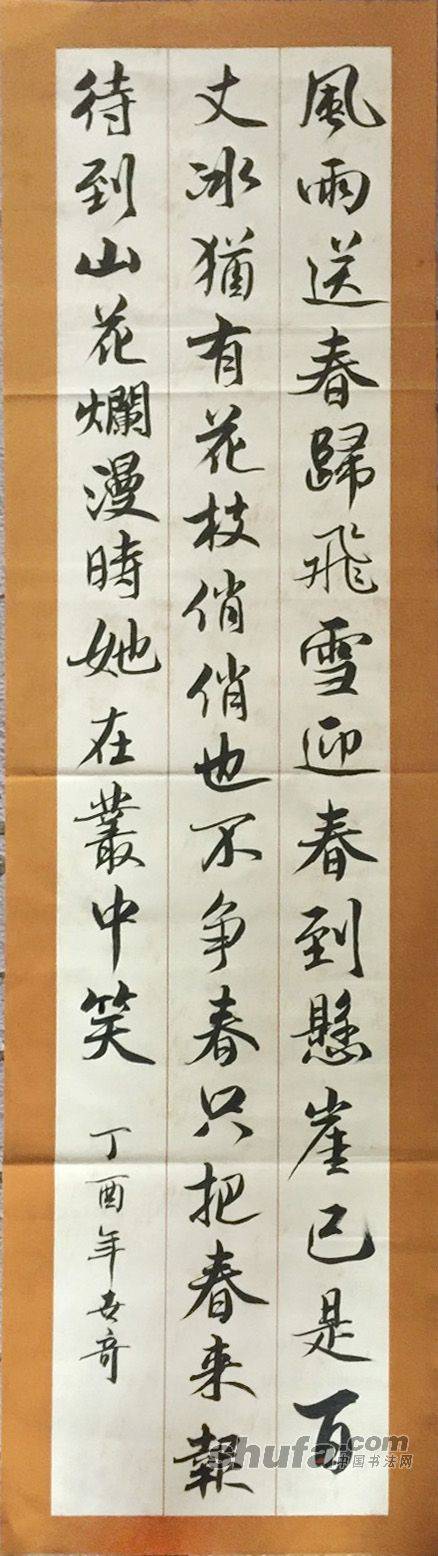 風雨送春歸飛雪迎春到懸崖已是百
丈冰猶有花枝俏俏也不争春只把春来報
待到山花爛漫時她在叢中笑
丁酉年世奇
Shufa.com
中国书法网